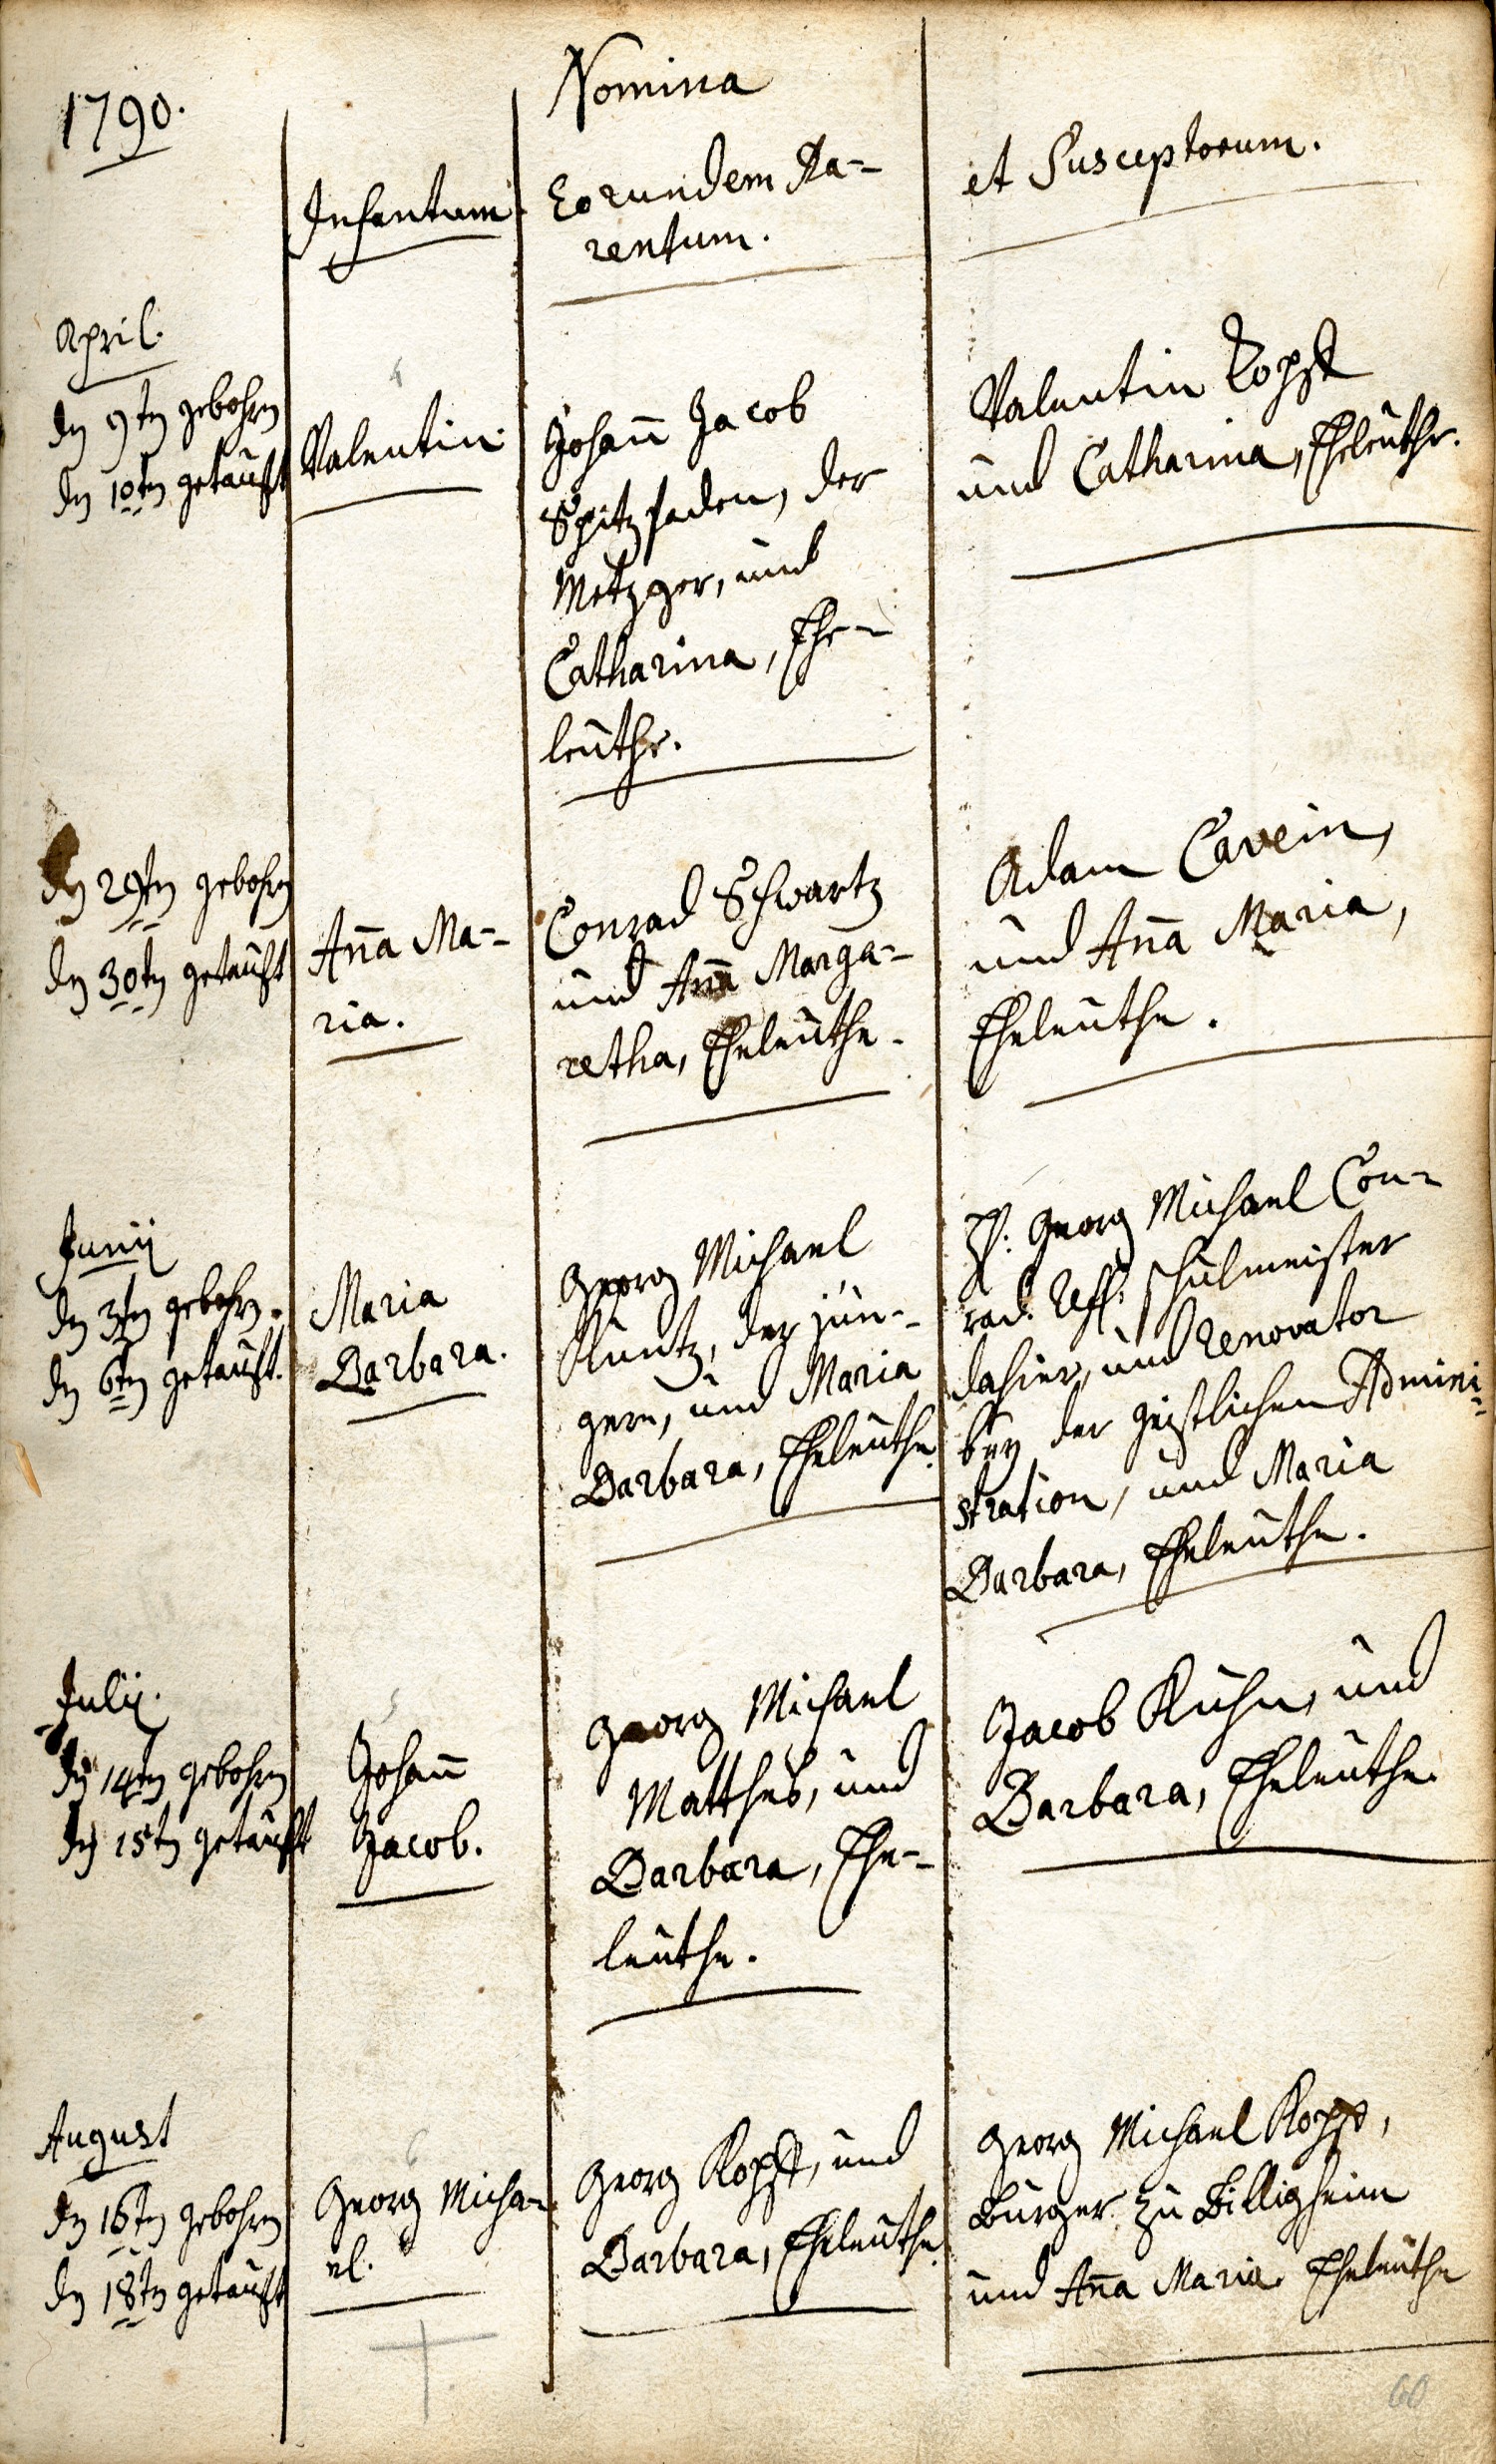 1790.
Nomina
Infantum.
Eorundem Pa=
rentum.
et Susceptorum.
April.
dn 9tn gebohrn
dn 10tn getauft
4
Valentin.
Johann Jacob
Spitzfaden, der
Metzger, und
Catharina, Ehe-
leuthe.
Valentin Kopf
und Catharina, Eheleuthe.
dn 29tn gebohrn
dn 30tn getauft
Anna Ma=
ria.
Conrad Schwartz
und Anna Marga=
retha, Eheleuthe.
Adam Cavein,
und Anna Maria,
Eheleuthe.
Junij
dn 3tn gebohrn.
dn 6tn getauft.
Maria
Barbara.
Georg Michael
Kuntz, der jün=
gere, und Maria
Barbara, Eheleuthe.
H: Georg Michael Con=
rad. Reff: Schulmeister
dahier, und Renovator
bey der geistlichen Admini=
stration, und Maria
Barbara, Eheleuthe.
Julij.
dn 14tn gebohrn
dn 15tn getauft
5
Johann
Jacob.
Georg Michael
Mattheß, und
Barbara, Ehe=
leuthe.
Jacob Kuhn, und
Barbara, Eheleuthe.
August
dn 16tn gebohrn
dn 18tn getauft
6
Georg Micha=
el.
Georg Kopf, und
Barbara, Eheleuthe.
Georg Michael Kopf,
Bürger zu Billigheim
und Anna Maria Eheleuthe
60